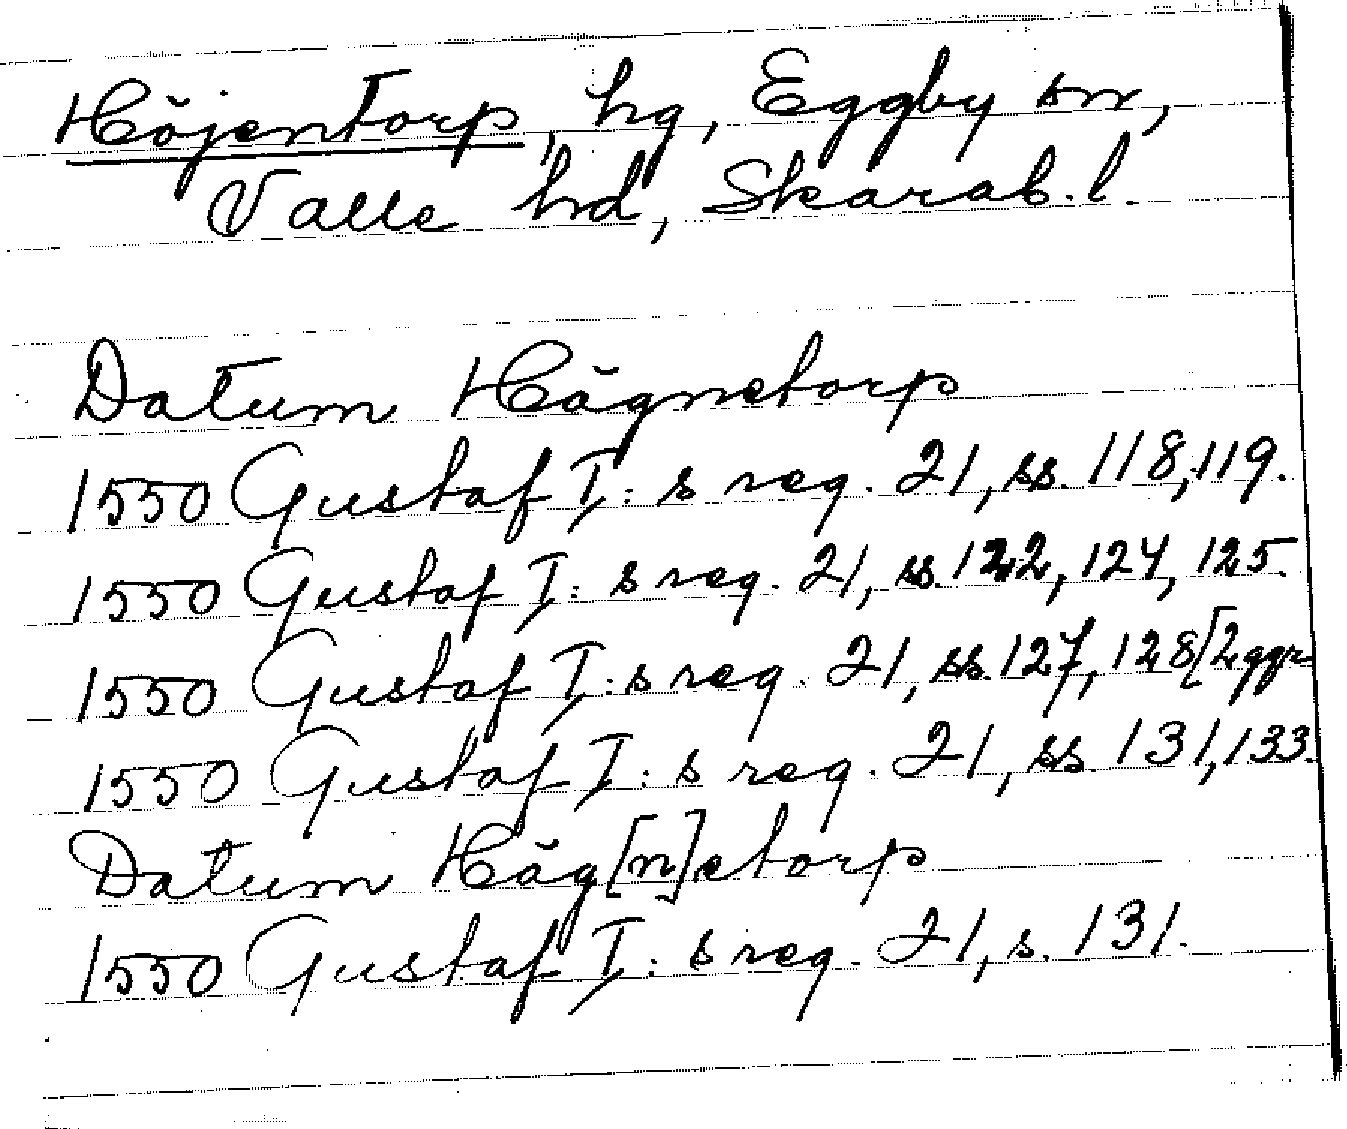 Höjentorp, hg, Eggby sn,
Valle hd, Skarab. l.
Datum Högnetorp
1550 Gustaf I: s reg. 21, ss. 118, 119.
1550 Gustaf I: s reg. 21, ss. 122, 124, 125.
1550 Gustaf I: s reg. 21, ss. 127, 128 [2 ggr
1550 Gustaf I: s reg. 21, ss 131, 133.
Datum Hög[n]etorp
1550 Gustaf I: s reg. 21, s. 131.